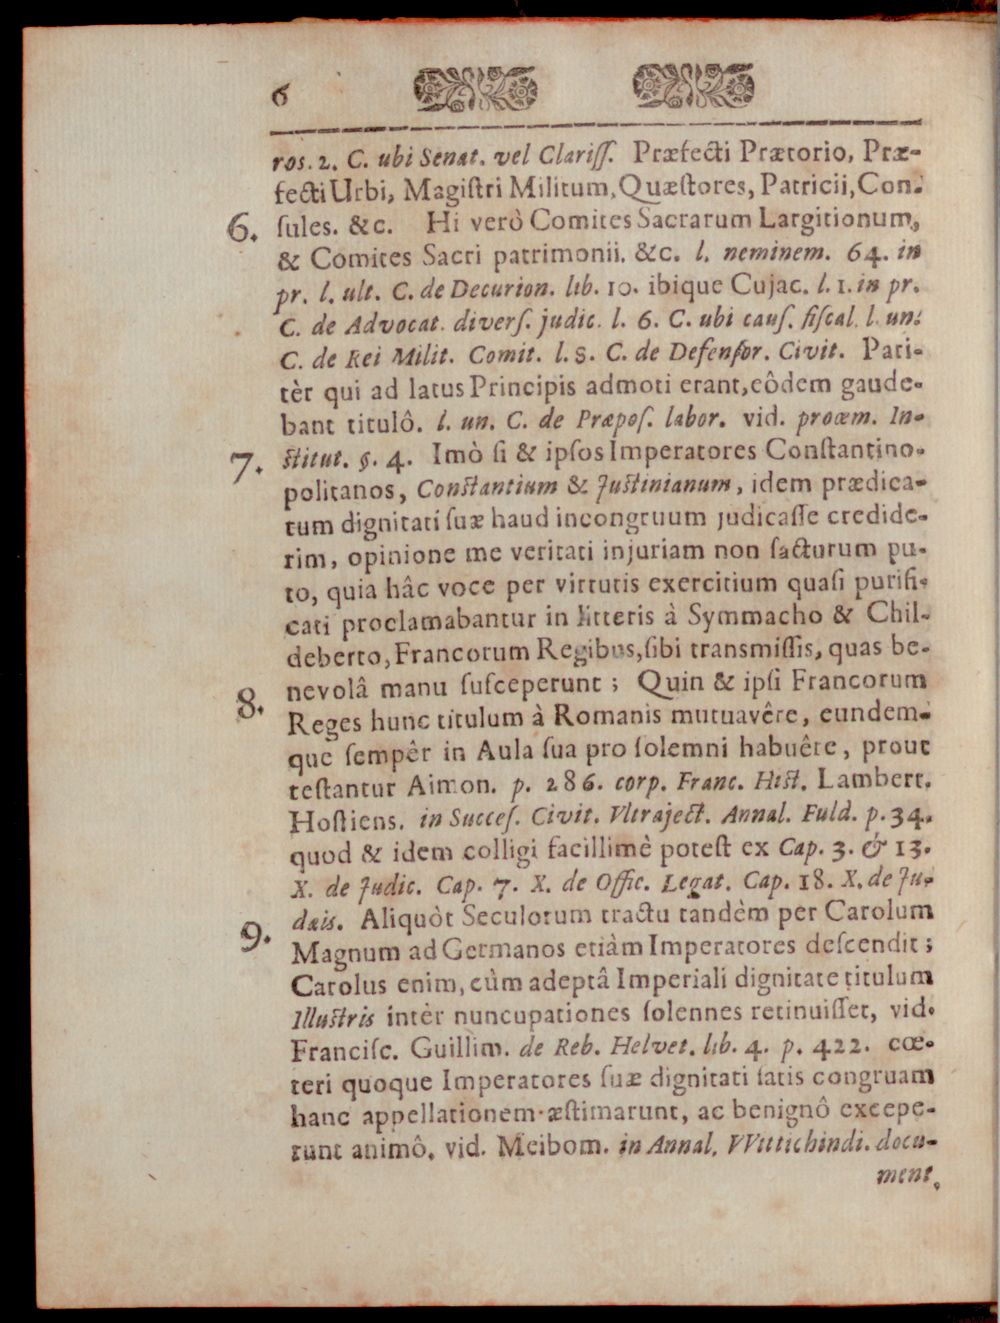 6
ros. 2. C. ubi Senat. vel Clariſſ. Præfecti Prætorio, Præ-
fecti Urbi, Magiſtri Militum, Quæſtores, Patricii, Con-
6. ſules. &c. Hi verò Comites Sacrarum Largitionum,
& Comites Sacri patrimonii. &c. l. neminem. 64. in
pr. l. ult. C. de Decurion. lib. 10. ibique Cujac. l. 1. in pr.
C. de Advocat. diverſ. judic. l. 6. C. ubi cauſ. fiſcal. l. un.
C. de Rei Milit. Comit. l. 8. C. de Defenſor. Civit. Pari-
tèr qui ad latus Principis admoti erant, eôdem gaude-
bant titulô. l. un. C. de Præpoſ. labor. vid. proœm. In-
7. ſtitut. §. 4. Imò ſi & ipſos Imperatores Conſtantino-
politanos, Conſtantium & Juſtinianum, idem prædica-
tum dignitati ſuæ haud incongruum judicaſſe credide-
rim, opinione me veritati injuriam non facturum pu-
to, quia hâc voce per virtutis exercitium quaſi purifi-
cati proclamabantur in litteris à Symmacho & Chil-
deberto, Francorum Regibus, ſibi transmiſſis, quas be-
8. nevolâ manu ſuſceperunt; Quin & ipſi Francorum
Reges hunc titulum à Romanis mutuavêre, eundem-
que ſempêr in Aula ſua pro ſolemni habuêre, prout
teſtantur Aimon. p. 286. corp. Franc. Hiſt. Lambert.
Hoſtiens. in Succeſ. Civit. Vltraject. Annal. Fuld. p. 34.
quod & idem colligi facillimè poteſt ex Cap. 3. & 13.
X. de Judic. Cap. 7. X. de Offic. Legat. Cap. 18. X. de Ju-
9. dæis. Aliquòt Seculorum tractu tandèm per Carolum
Magnum ad Germanos etiàm Imperatores deſcendit;
Carolus enim, cùm adeptâ Imperiali dignitate titulum
Illuſtris intèr nuncupationes ſolennes retinuiſſet, vid.
Franciſc. Guillim. de Reb. Helvet. lib. 4. p. 422. cœ-
teri quoque Imperatores ſuæ dignitati ſatis congruam
hanc appellationem æſtimarunt, ac benignô excepe-
runt animô. vid. Meibom. in Annal. VVittichindi. docu-
ment.